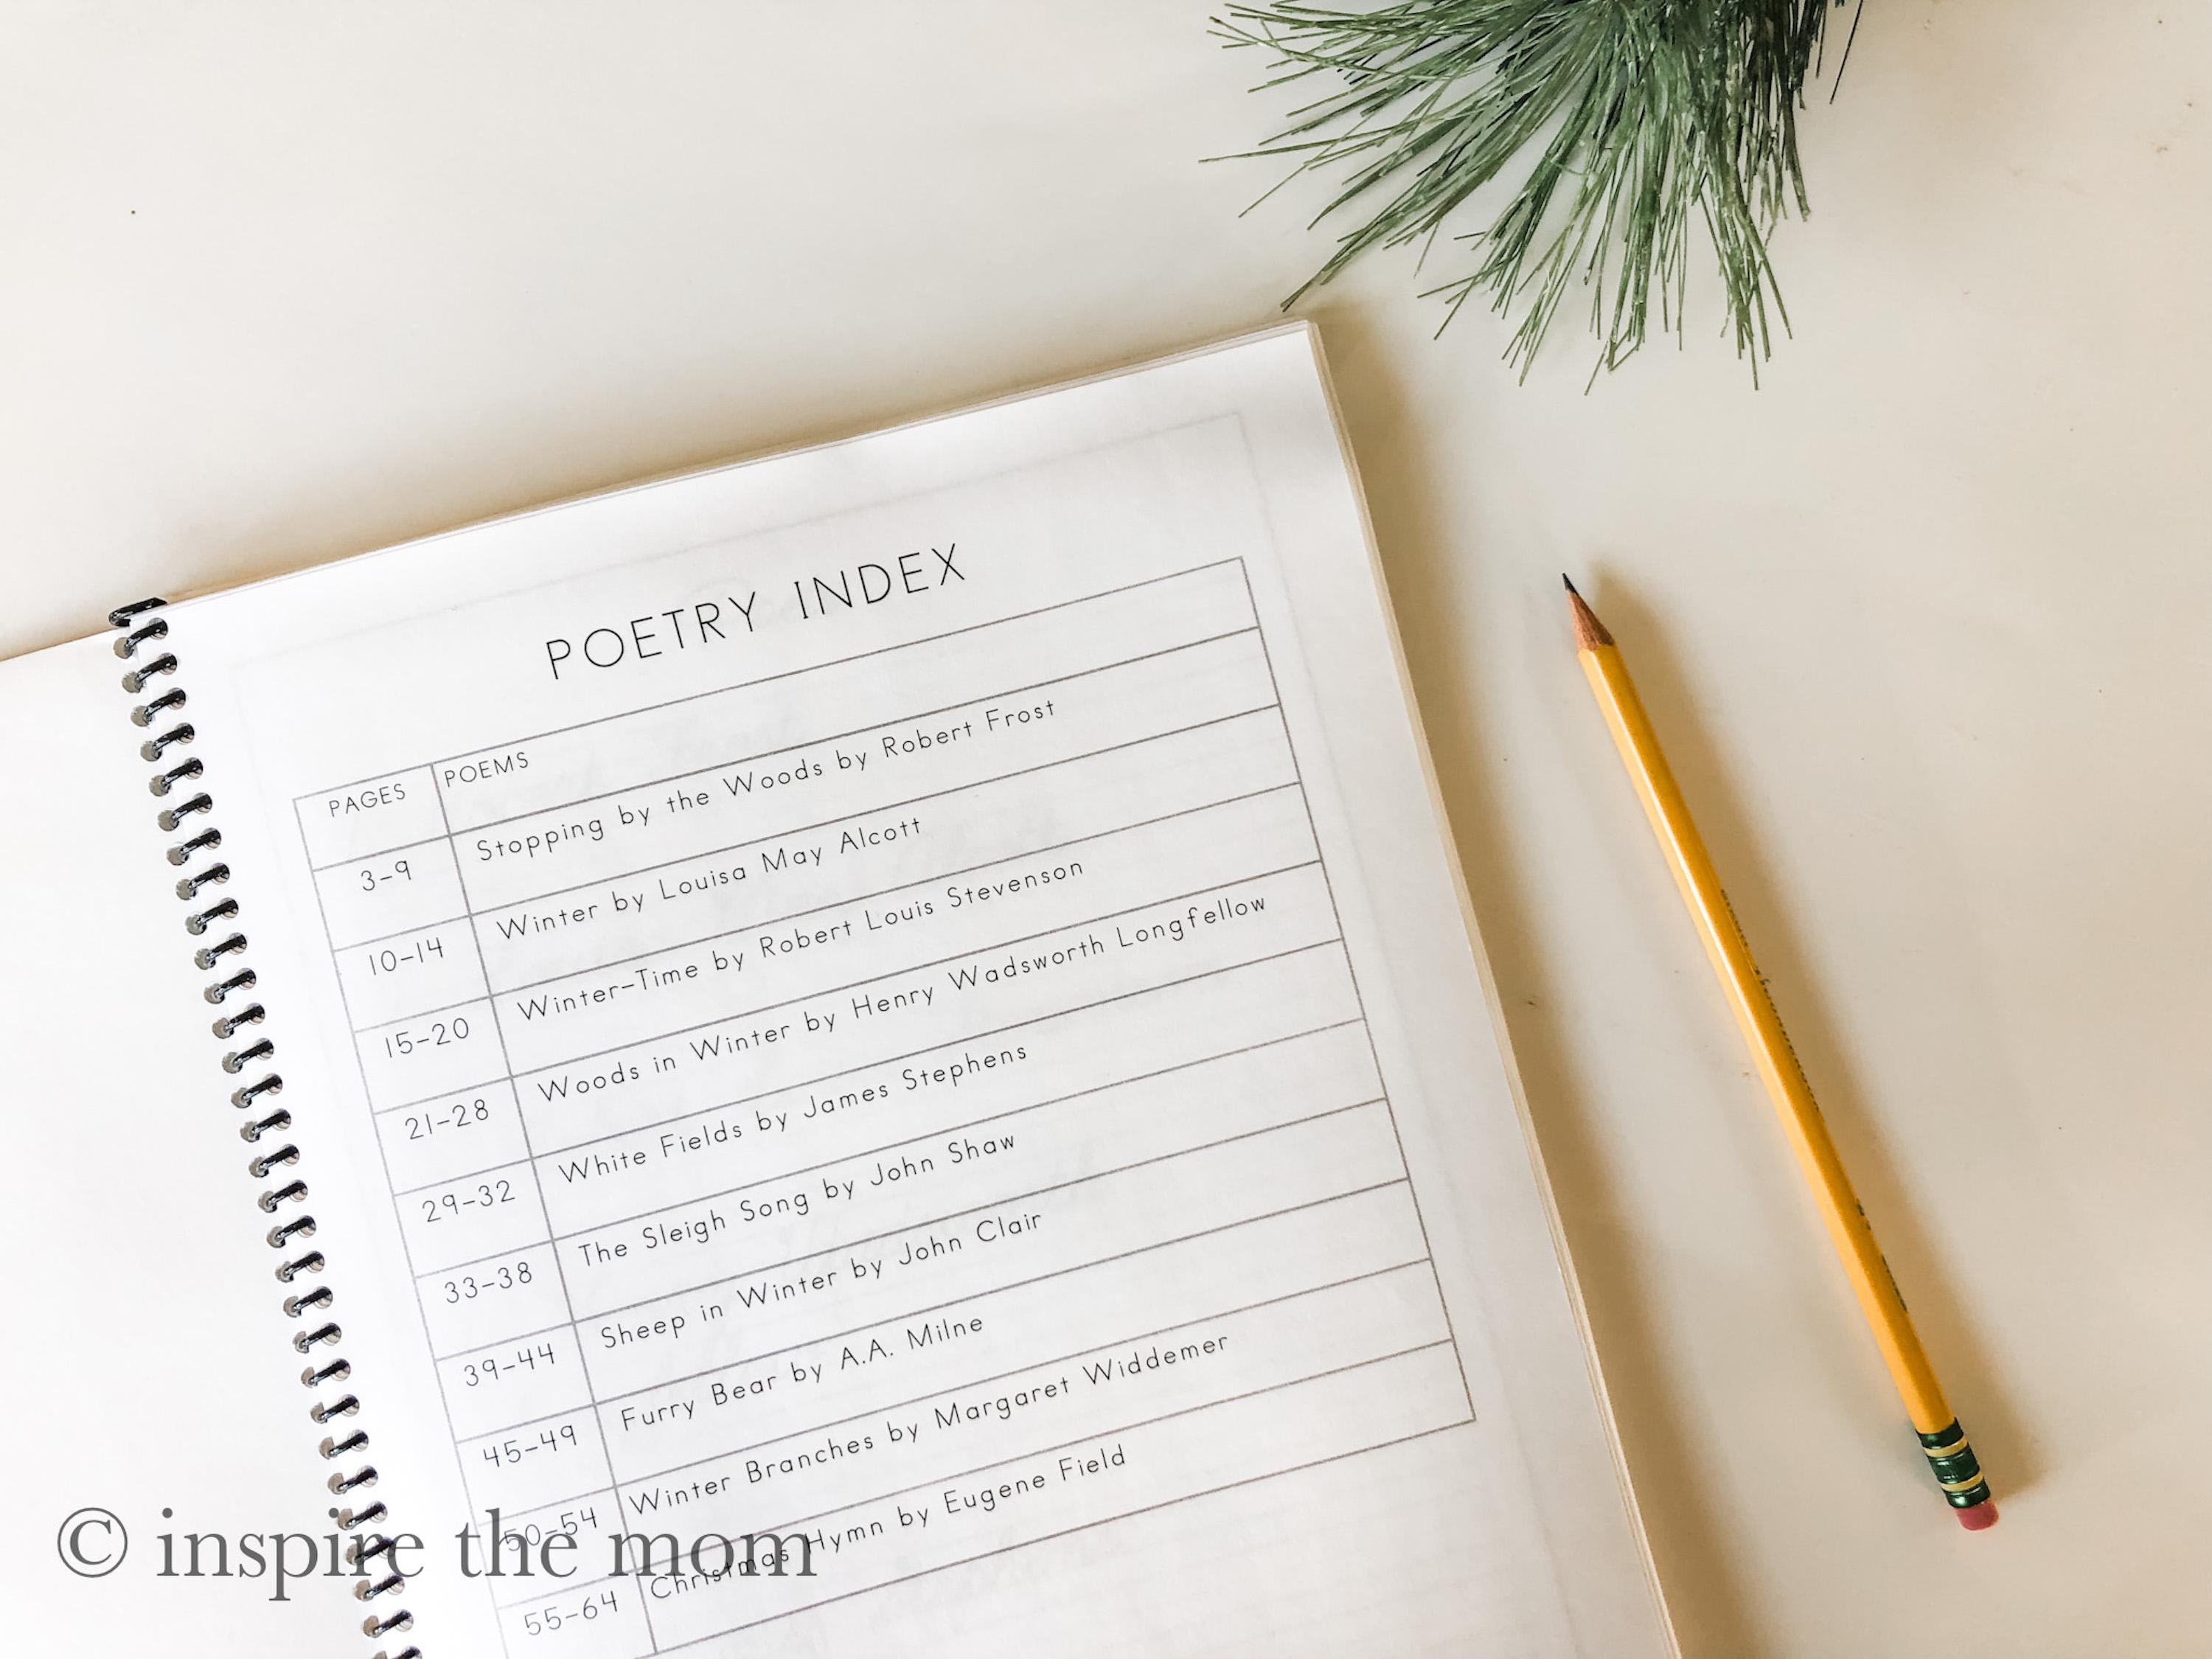 POETRY INDEX
PAGES POEMS
3-9 Stopping by the Woods by Robert Frost
10-14 Winter by Louisa May Alcott
15-20 Winter-Time by Robert Louis Stevenson
21-28 Woods in Winter by Henry Wadsworth Longfellow
29-32 White Fields by James Stephens
33-38 The Sleigh Song by John Shaw
39-44 Sheep in Winter by John Clair
45-49 Furry Bear by A.A. Milne
50-54 Winter Branches by Margaret Widdemer
55-64 Christmas Hymn by Eugene Field
© inspire the mom